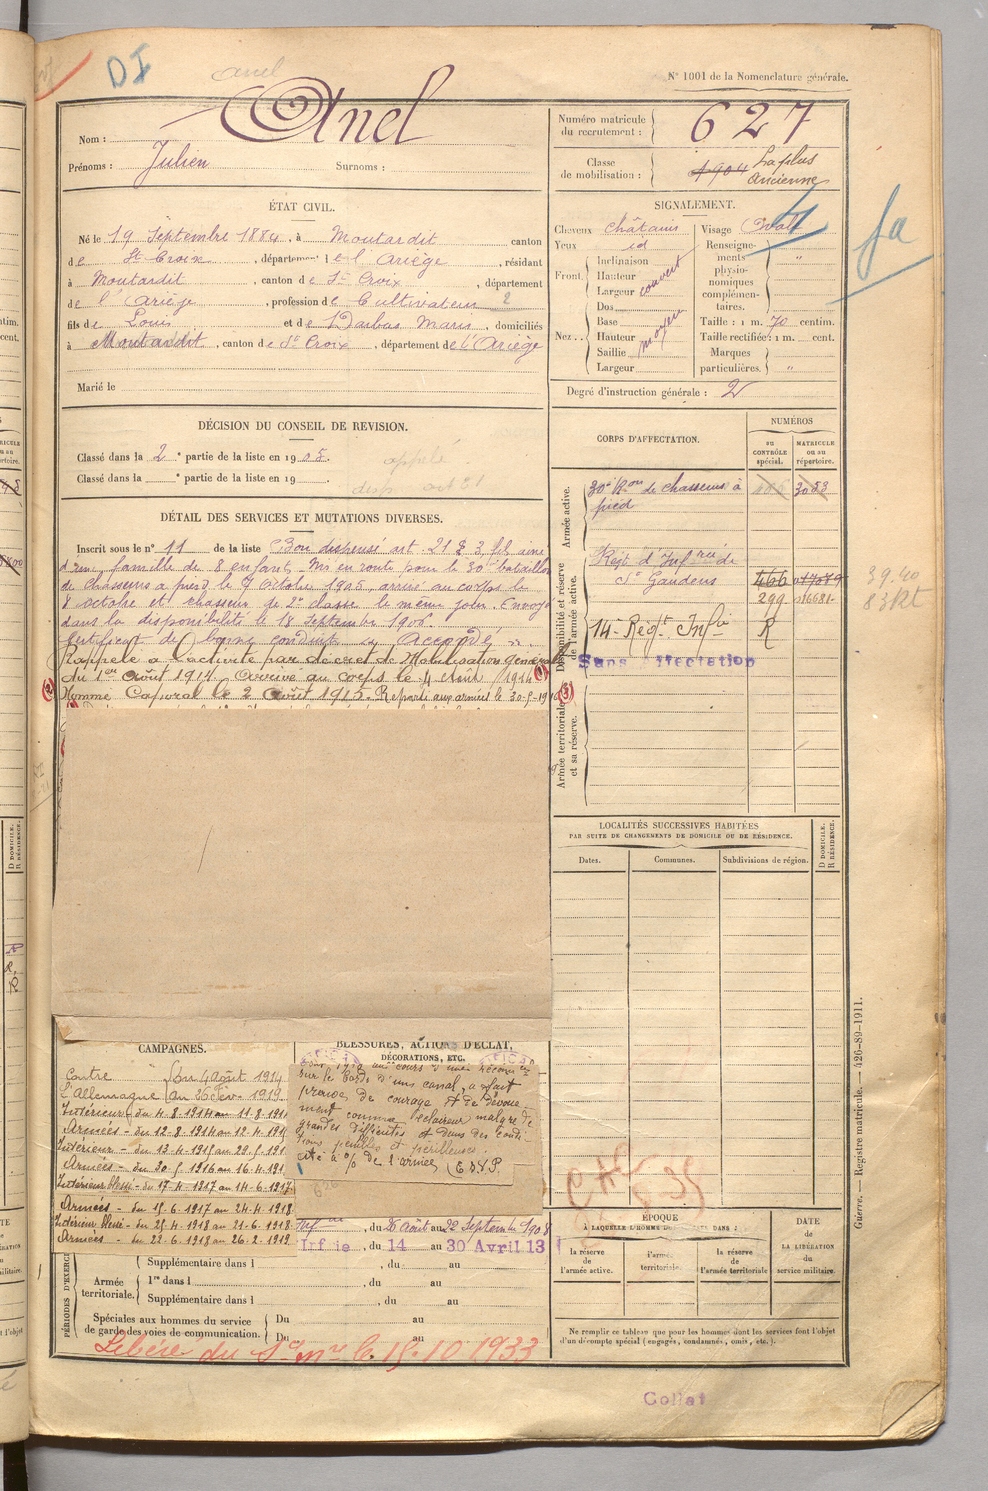 DI
anel
N° 1001 de la Nomenclature générale.
Nom : Anel
Prénoms : Julien Surnoms :
Numéro matricule du recrutement : 627
Classe de mobilisation : 1904 La plus Ancienne
ÉTAT CIVIL.
Né le 19 Septembre 1884, à Montardit canton
de St Croix, département de l'Ariège, résidant
à Montardit, canton de St Croix, département
de l'Ariège, profession de Cultivateur 2
fils de Louis et de Darbas Marie, domiciliés
à Montardit, canton de St Croix, département de l'Ariège
Marié le
SIGNALEMENT.
Cheveux châtains Visage Oval
Yeux id
Front. Inclinaison Hauteur Largeur couvert
Nez. Dos Base Hauteur Saillie Largeur moyen
Renseignements physionomiques complémentaires. "
Taille : 1 m. 70 centim.
Taille rectifiée : 1 m. cent.
Marques particulières. "
fa
Degré d'instruction générale : 2
DÉCISION DU CONSEIL DE REVISION.
Classé dans la 2e partie de la liste en 1905.
Classé dans la e partie de la liste en 19 .
appelé
disp. art 21
DÉTAIL DES SERVICES ET MUTATIONS DIVERSES.
Inscrit sous le n° 11 de la liste Bon dispensé art. 21 § 3, fils aîné
d'une famille de 8 enfants. Mis en route pour le 30e bataillon
de chasseurs à pied le 7 octobre 1905, arrivé au corps le
8 octobre et chasseur de 2e classe le même jour. Envoyé
dans la disponibilité le 18 Septembre 1906.
Certificat de bonne conduite " Accordé "
Rappelé à l'activité par décret de Mobilisation générale
du 1er Août 1914. Arrivé au corps le 4 Août 1914
Nommé Caporal le 2 Août 1915. Reparti aux armées le 30-5-191
CORPS D'AFFECTATION.
NUMÉROS
au CONTRÔLE spécial.
MATRICULE ou au répertoire.
Armée active.
30e Bon de chasseurs à 3053
pied
Disponibilité et réserve de l'armée active.
Régt d'Infrie de
St Gaudens 466
299
14e Régt Infie R
Sans affectation
39.40
Armée territoriale et sa réserve.
LOCALITÉS SUCCESSIVES HABITÉES
PAR SUITE DE CHANGEMENTS DE DOMICILE OU DE RÉSIDENCE.
Dates. Communes. Subdivisions de région. D DOMICILE. R RÉSIDENCE.
CAMPAGNES.
Contre du 4 Août 1914
L'Allemagne au 26 Fév. 1919
Intérieur - du 4-8-1914 au 11-8-191
Armées - du 12-8-1914 au 12-4-191
Intérieur - du 13-4-1915 au 29-5-191
Armées - du 30-5-1916 au 16-4-191
Intérieur blessé - du 17-4-1917 au 14-6-1917
Armées - du 15-6-1917 au 24-4-1918
Intérieur blessé - du 25-4-1918 au 21-6-1918
Armées - du 22-6-1918 au 26-2-1919
BLESSURES, ACTIONS D'ÉCLAT,
DÉCORATIONS, ETC.
au cours d'une reconn
sur le bords d'un canal, a fait
preuve de courage et de dévoue
ment comme éclaireur malgré de
grandes difficultés et dans des condi
tions pénibles et périlleuses.
cité à % de l'armée
, du 26 Août au 22 Septembre 1908
Inf ie, du 14 au 30 Avril 13
PÉRIODES D'EXERCICES
Armée territoriale.
Supplémentaire dans l , du au
1re dans l , du au
Supplémentaire dans l , du au
Spéciales aux hommes du service de garde des voies de communication. Du au
Du au
Libéré du Sce mre le 15.10.1933
ÉPOQUE
À LAQUELLE L'HOMME DANS :
la réserve de l'armée active.
l'armée territoriale.
la réserve de l'armée territoriale
DATE DE LA LIBÉRATION du service militaire.
Ne remplir ce tableau que pour les hommes dont les services font l'objet
d'un décompte spécial (engagés, condamnés, omis, etc.).
Guerre. — Registre matricule. — 426-89-1911.
Collat